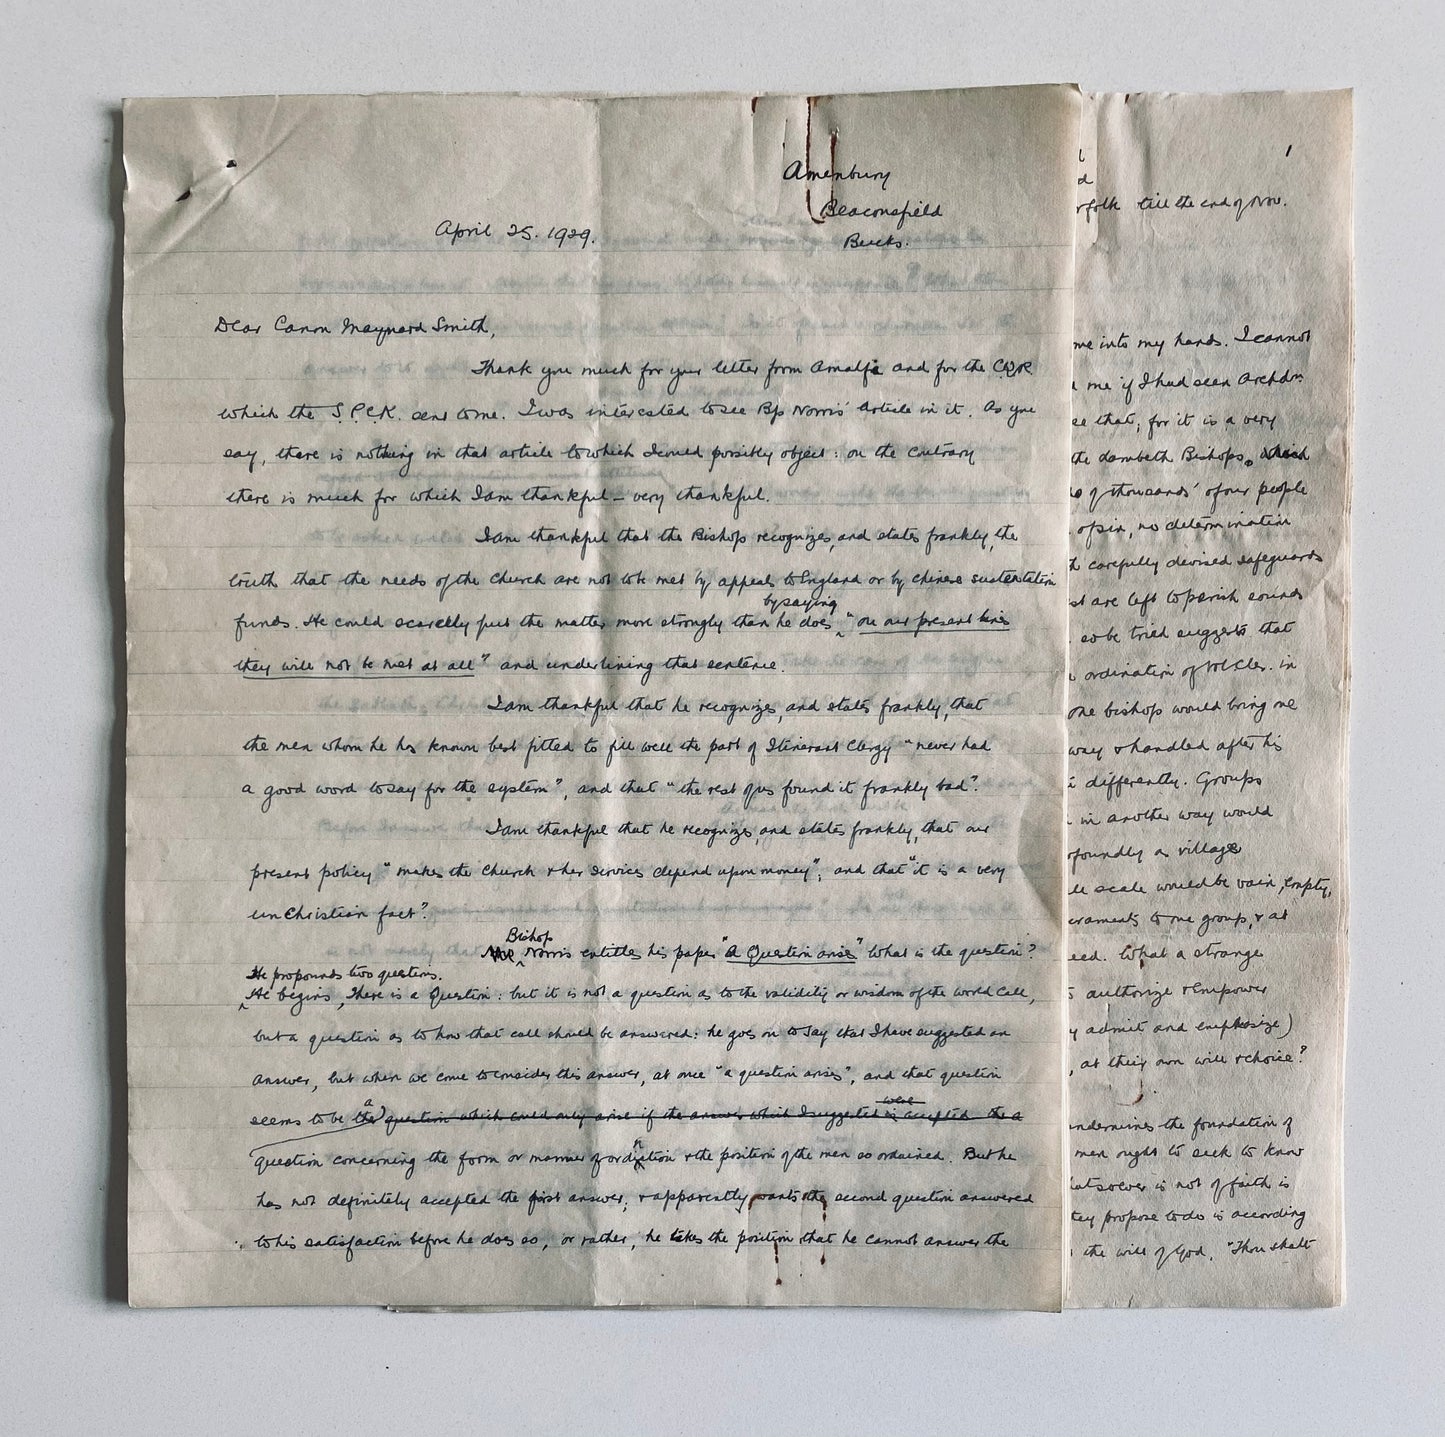 Amenbury
Beaconsfield
Bucks.
April 25. 1929.
Dear Canon Maynard Smith,
Thank you much for your letter from Amalfi and for the CQR
which the S.P.C.K. sent to me. I was interested to see Bp Norris' article in it. As you
say, there is nothing in that article to which I could possibly object: on the contrary
there is much for which I am thankful – very thankful.
I am thankful that the Bishop recognizes, and states frankly, the
truth that the needs of the Church are not to be met by appeals to England or by Chinese sustentation
by saying
funds. He could scarcely put the matter more strongly than he does "on our present lines
they will not be met at all" and underlining that sentence.
I am thankful that he recognizes, and states frankly, that
the men whom he has known best fitted to fill well the part of Itinerant Clergy "never had
a good word to say for the system", and that "the rest of us found it frankly bad".
I am thankful that he recognizes, and states frankly, that our
present policy "makes the Church & her services depend upon money", and that "it is a very
unChristian fact".
Bishop
Norris entitles his paper "A Question arises" What is the question?
He propounds two questions.
He begins, There is a Question: but it is not a question as to the validity or wisdom of the World Call,
but a question as to how that call should be answered: he goes on to say that I have suggested an
answer, but when we come to consider this answer, at once "a question arises", and that question
were
a
seems to be the question which could only arise if the answer which I suggested is accepted the a
question concerning the form or manner of ordination & the position of the men so ordained. But he
has not definitely accepted the first answer; & apparently wants the second question answered
to his satisfaction before he does so, or rather, he takes the position that he cannot answer the
1
till the end of Nov.
me into my hands. I cannot
me if I had seen Archdn
that, for it is a very
the Lambeth Bishops, which
of thousands' of our people
of sin, no determination
carefully devised safeguards
are left to perish sounds
so be tried suggests that
ordination of Vol Cler. in
one bishop would bring me
way & handled after his
differently. Groups
in another way would
ofoundly a village
scale would be vain, empty,
craments to one group, & at
eed. What a strange
authorize & empower
admit and emphasize)
, at their own will & choice?
undermines the foundation of
men ought to seek to know
hatsoever is not of faith is
they propose to do is according
the will of God. "Thou shalt